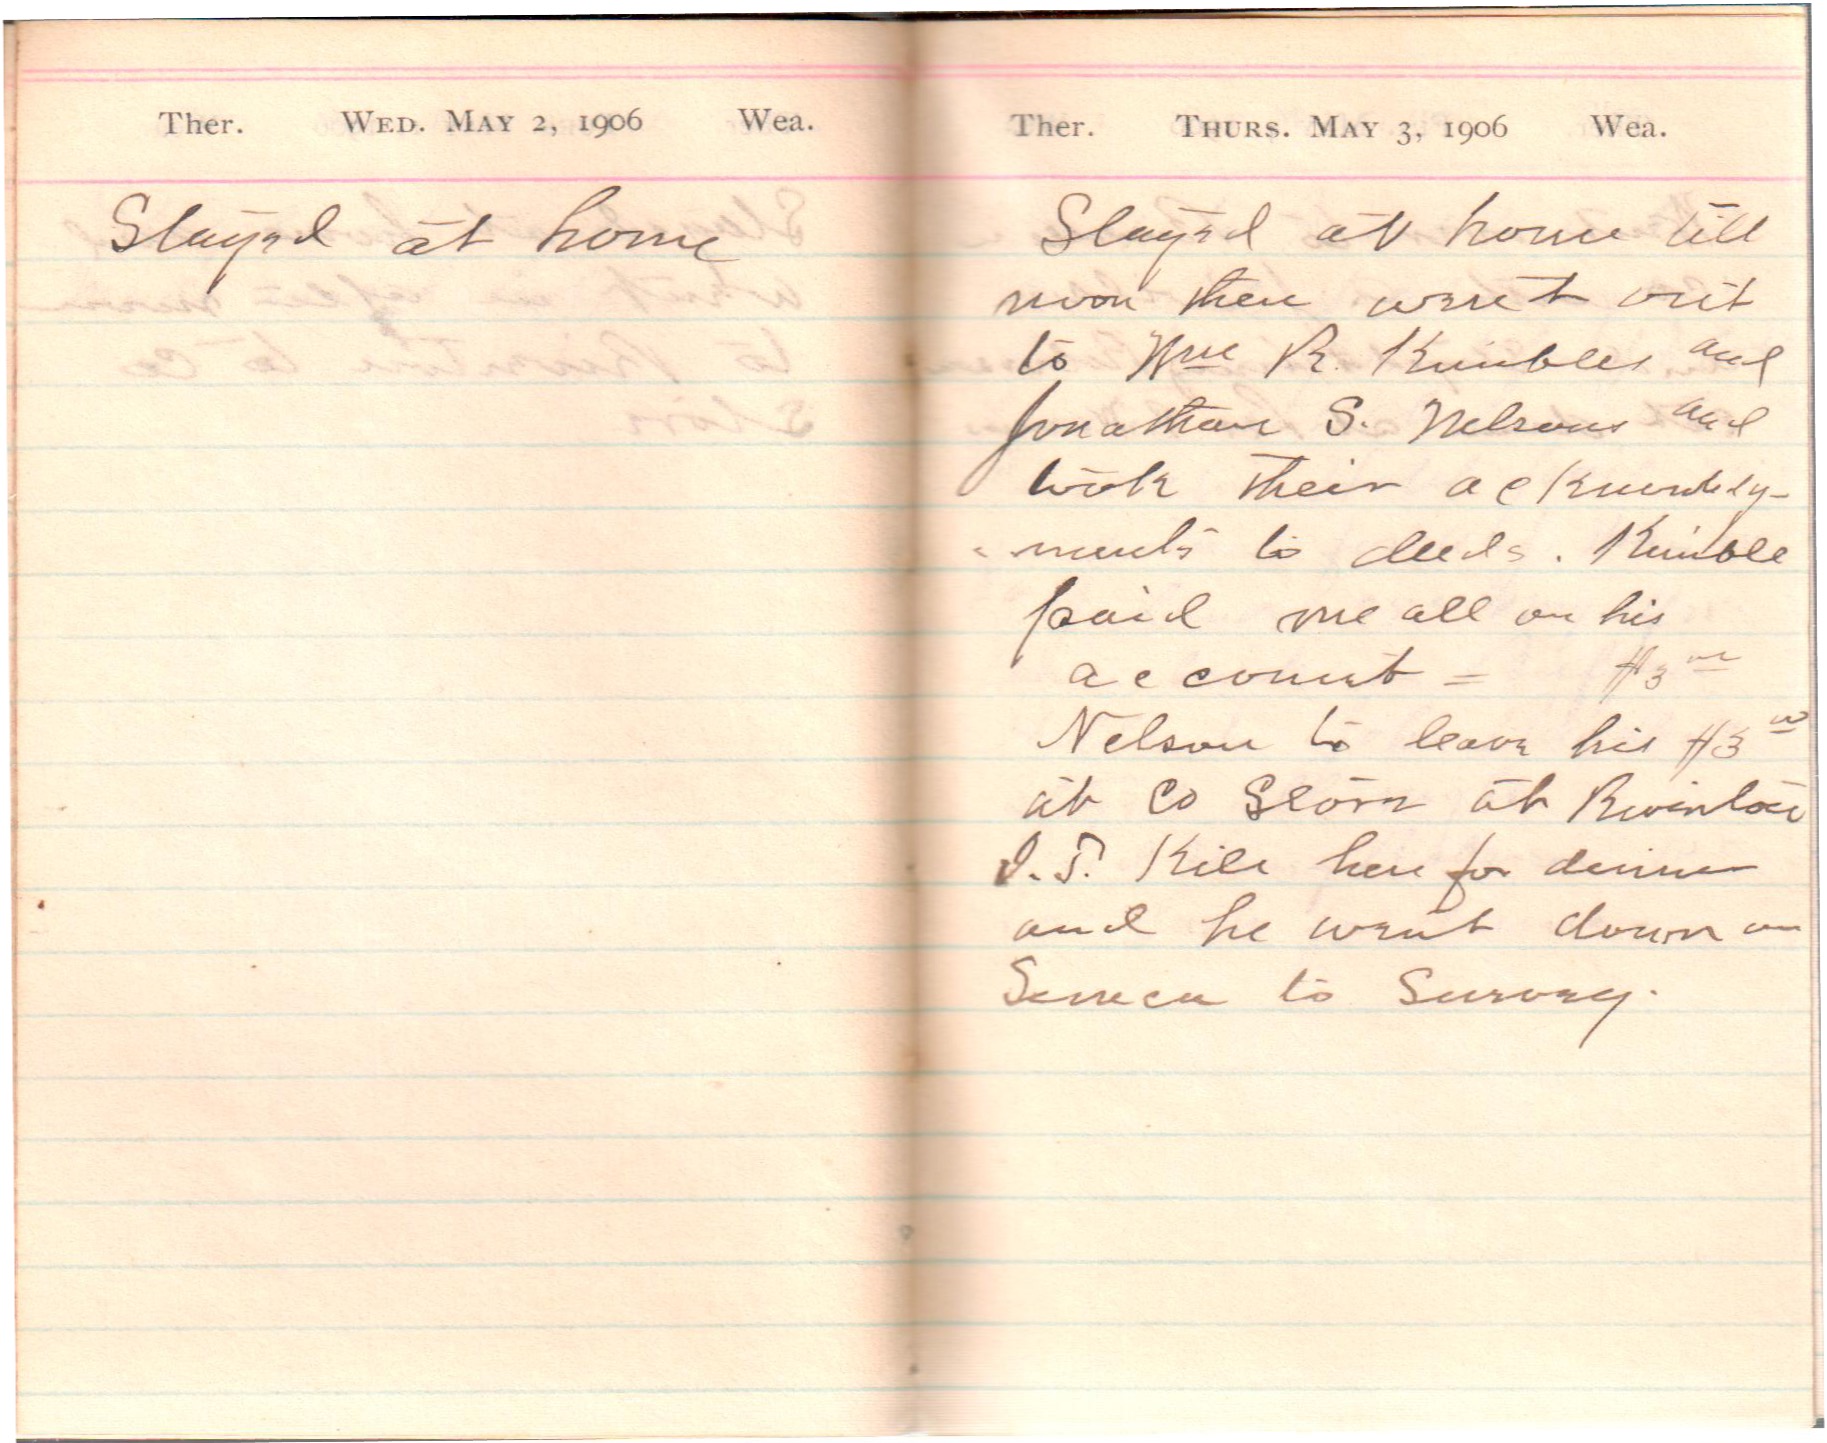 Ther. Wed. May 2, 1906 Wea.
Stayed at home
Ther. Thurs. May 3, 1906 Wea.
Stayed at home till
noon then went out
to Wm R. Kimbles and
Jonathan S. Nelsons and
took their acknowledg-
ments to deeds. Kimble
paid me all on his
account = $3 00
Nelson to leave his $3 00
at Co Store at Riverton
I. T. Kile here for dinner
and he went down on
Seneca to Survey.